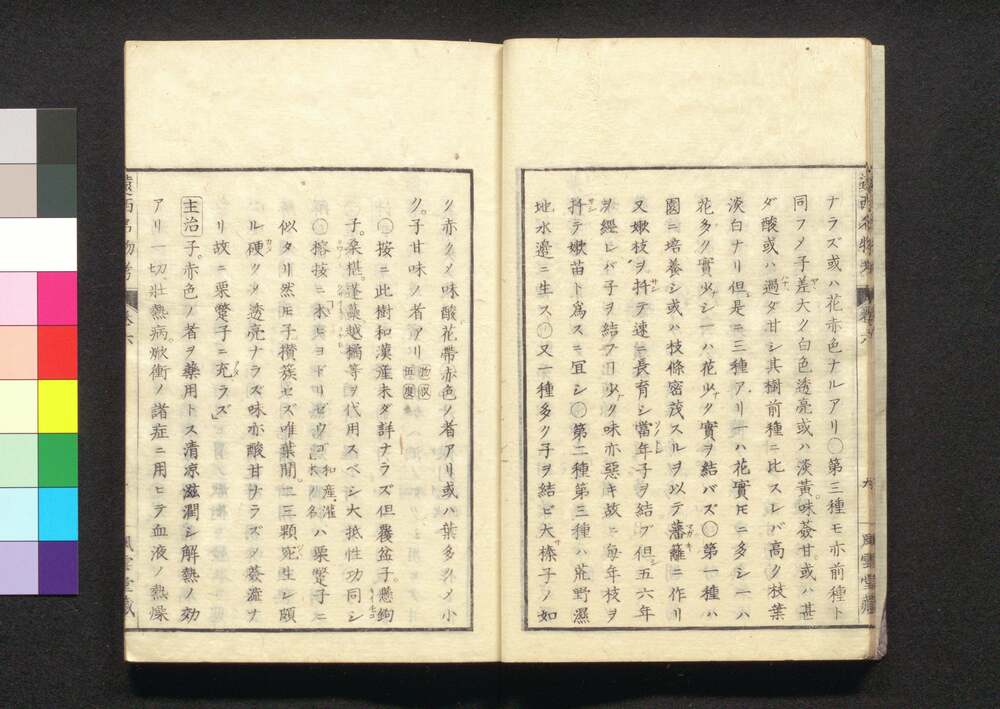 ナラズ或ハ花赤色ナルアリ○第三種モ亦前種ト
同フメ子差大ク白色透亮或ハ淡黃味薟甘或ハ甚
ダ酸或ハ過ダ甘シ其樹前種ニ比スレバ高ク枝葉
淡白ナリ但是ニ三種アリ一ハ花實𪜈ニ多シ一ハ
花多ク實少シ一ハ花少ク實ヲ結バズ○第一種ハ
園ニ培養シ或ハ枝條密茂スルヲ以テ藩籬ニ作リ
又嫩枝ヲ扦テ速ニ長育シ當年子ヲ結ブ但五六年
ヲ經レバ子ヲ結ブ𪜈少ク味亦惡キ故ニ每年枝ヲ
扦テ嫩苗ト爲スニ宜シ○第二種第三種ハ荒野濕
地水邊ニ生ス○又一種多ク子ヲ結ビ大榛子ノ如
ク赤クメ味酸花帶赤色ノ者アリ或ハ葉多クメ小
ク子甘味ノ者アリ
○按ニ此樹和漢産未ダ詳ナラズ但覆盆子懸鉤
子桑椹蓬蔂越橘等ヲ代用スベシ大抵性功同シ
○榕按ニ「木ヒヨドリゼウゴ和産灌木ノ名ハ栗蘡子ニ
似タリ然𪜈子攅簇セズ唯葉間ニ二三顆宛生シ頗
ル硬クメ透亮ナラズ味亦酸甘ナラズメ薟澁ナ
リ故ニ栗蘡子ニ充ラズ」
主治 子赤色ノ者ヲ藥用トス清凉滋潤シ解熱ノ効
アリ一切壯熱病焮衝ノ諸症ニ用ヒテ血液ノ熱燥
卷六